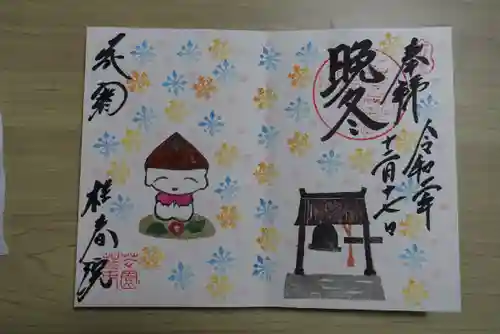 奉拝
令和二年
十二月十七日
晩冬
武州
桂春院